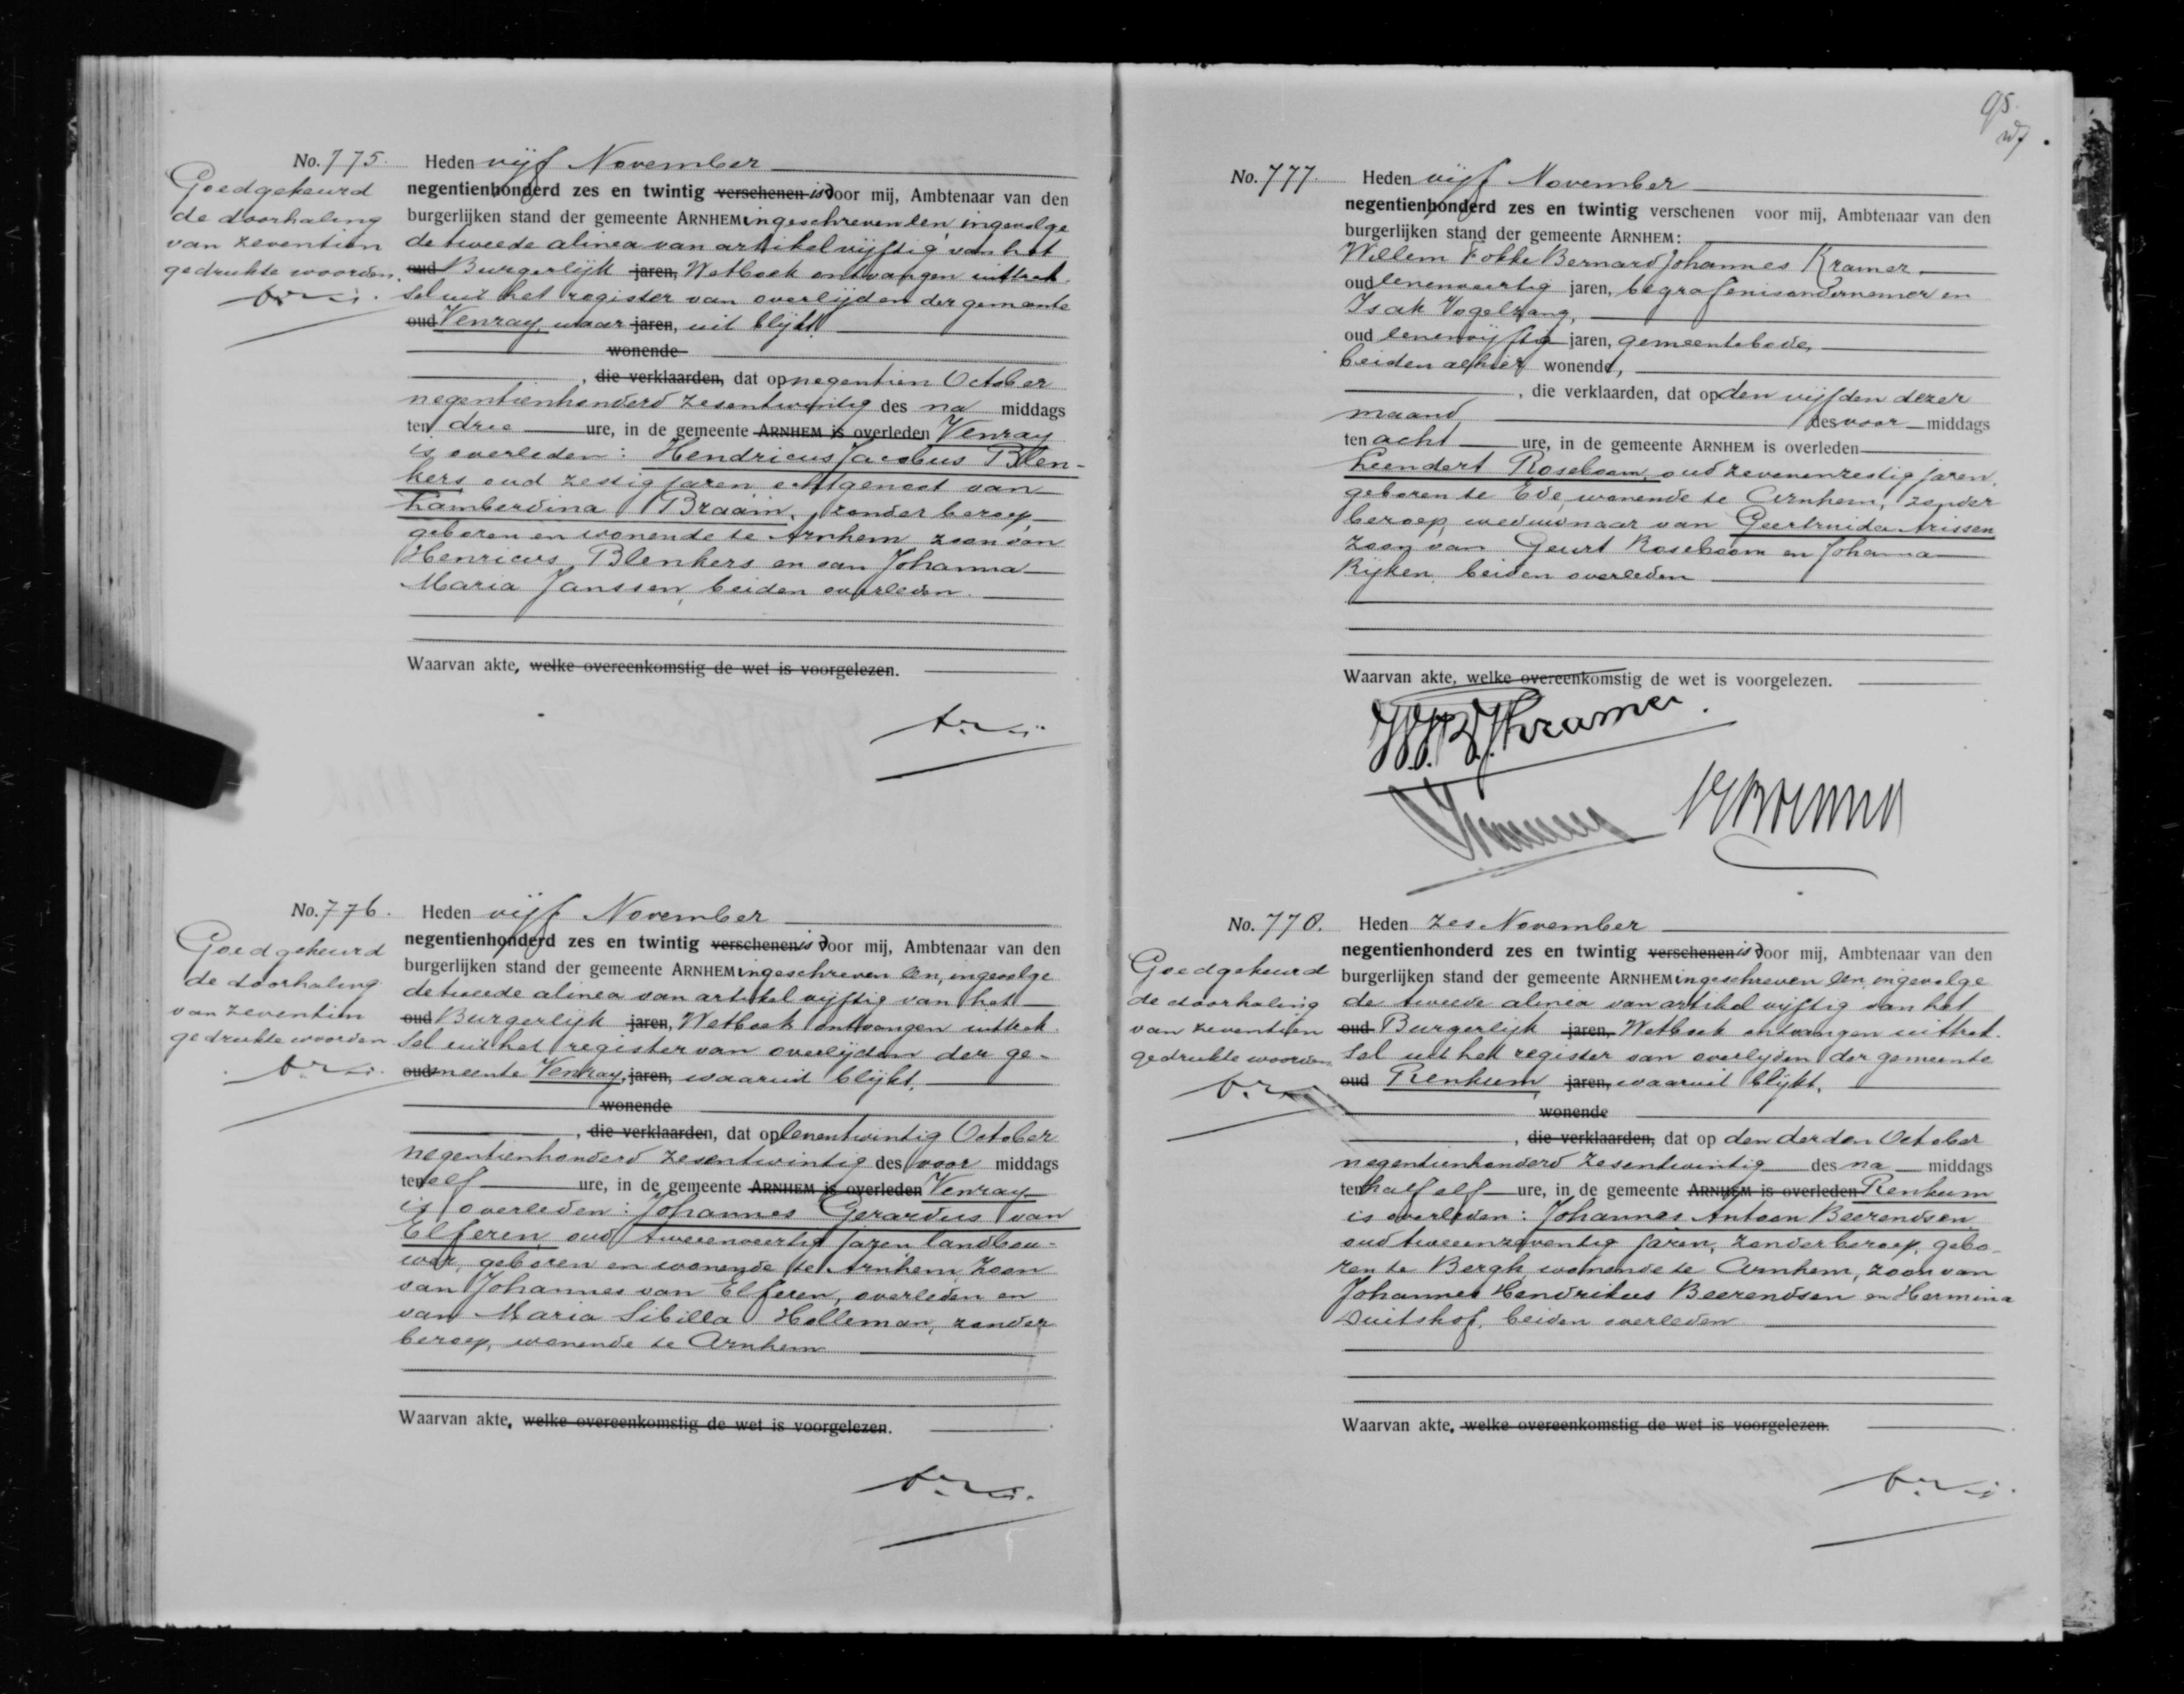 No. 775. Heden vijf November
Goedgekeurd
de doorhaling
van zeventien
gedrukte woorden.
negentienhonderd zes en twintig verschenen is door mij, Ambtenaar van den
burgerlijken stand der gemeente ARNHEM ingeschreven een, ingevolge
de tweede alinea van artikel vijftig van het
oud Burgerlijk jaren, Wetboek ontvangen uittrek-
sel uit het register van overlijden der gemeente
oud Venray, waar jaren, uit blijkt
wonende
, die verklaarden, dat op negentien October
negentienhonderd zesentwintig des na middags
ten drie ure, in de gemeente ARNHEM is overleden Venray
is overleden: Hendricus Jacobus Blen-
kers oud zestig jaren echtgenoot van
Lamberdina Braam, zonder beroep,
geboren en wonende te Arnhem zoon van
Henricus Blenkers en van Johanna
Maria Janssen, beiden overleden.
Waarvan akte, welke overeenkomstig de wet is voorgelezen.
No. 776. Heden vijf November
Goedgekeurd
de doorhaling
van zeventien
gedrukte woorden
negentienhonderd zes en twintig verschenen is door mij, Ambtenaar van den
burgerlijken stand der gemeente ARNHEM ingeschreven een, ingevolge
de tweede alinea van artikel vijftig van het
oud Burgerlijk jaren, Wetboek ontvangen uittrek-
sel uit het register van overlijden der ge-
oud meente Venray, jaren, waaruit blijkt,
wonende
, die verklaarden, dat op eenentwintig October
negentienhonderd zesentwintig des voor middags
ten elf ure, in de gemeente ARNHEM is overleden Venray
is overleden: Johannes Gerardus van
Elferen, oud tweeenveertig jaren, landbou-
wer, geboren en wonende te Arnhem, zoon
van Johannes van Elferen, overleden en
van Maria Sibilla Holleman, zonder
beroep, wonende te Arnhem
Waarvan akte, welke overeenkomstig de wet is voorgelezen.
95.
No. 777. Heden vijf November
negentienhonderd zes en twintig verschenen voor mij, Ambtenaar van den
burgerlijken stand der gemeente ARNHEM:
Willem Fokke Bernard Johannes Kramer,
oud eenenveertig jaren, begrafenisondernemer en
Isak Vogelzang,
oud eenenvijftig jaren, gemeentebode,
beiden alhier wonende,
, die verklaarden, dat op den vijfden dezer
maand des voor middags
ten acht ure, in de gemeente ARNHEM is overleden
Leendert Roseboom, oud zevenenzestig jaren,
geboren te Ede, wonende te Arnhem, zonder
beroep, weduwnaar van Geertruida Arissen
zoon van Geurt Roseboom en Johanna
Rijken, beiden overleden
Waarvan akte, welke overeenkomstig de wet is voorgelezen.
W.F.B.J. Kramer.
No. 778. Heden zes November
Goedgekeurd
de doorhaling
van zeventien
gedrukte woorden
negentienhonderd zes en twintig verschenen is door mij, Ambtenaar van den
burgerlijken stand der gemeente ARNHEM ingeschreven een, ingevolge
de tweede alinea van artikel vijftig van het
oud Burgerlijk jaren, Wetboek ontvangen uittrek-
sel uit het register van overlijden der gemeente
oud Renkum, jaren, waaruit blijkt,
wonende
, die verklaarden, dat op den derden October
negentienhonderd zesentwintig des na middags
ten half elf ure, in de gemeente ARNHEM is overleden Renkum
is overleden: Johannes Antoon Beerendsen,
oud tweeenzeventig jaren, zonder beroep, gebo-
ren te Bergh, wonende te Arnhem, zoon van
Johannes Hendrikus Beerendsen en Hermina
Duitshof, beiden overleden
Waarvan akte, welke overeenkomstig de wet is voorgelezen.